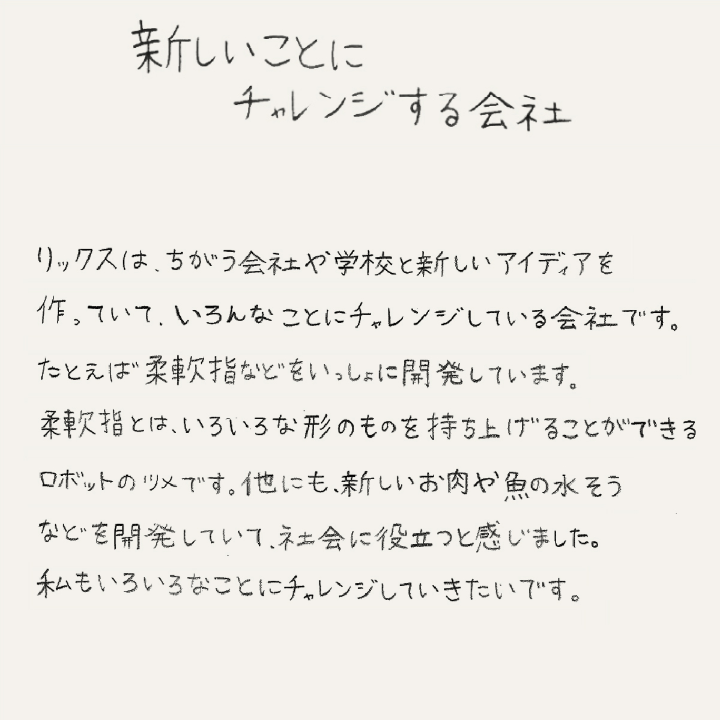 新しいことに
チャレンジする会社
リックスは、ちがう会社や学校と新しいアイディアを
作っていて、いろんなことにチャレンジしている会社です。
たとえば柔軟指などをいっしょに開発しています。
柔軟指とは、いろいろな形のものを持ち上げることができる
ロボットのツメです。他にも、新しいお肉や魚の水そう
などを開発していて、社会に役立つと感じました。
私もいろいろなことにチャレンジしていきたいです。